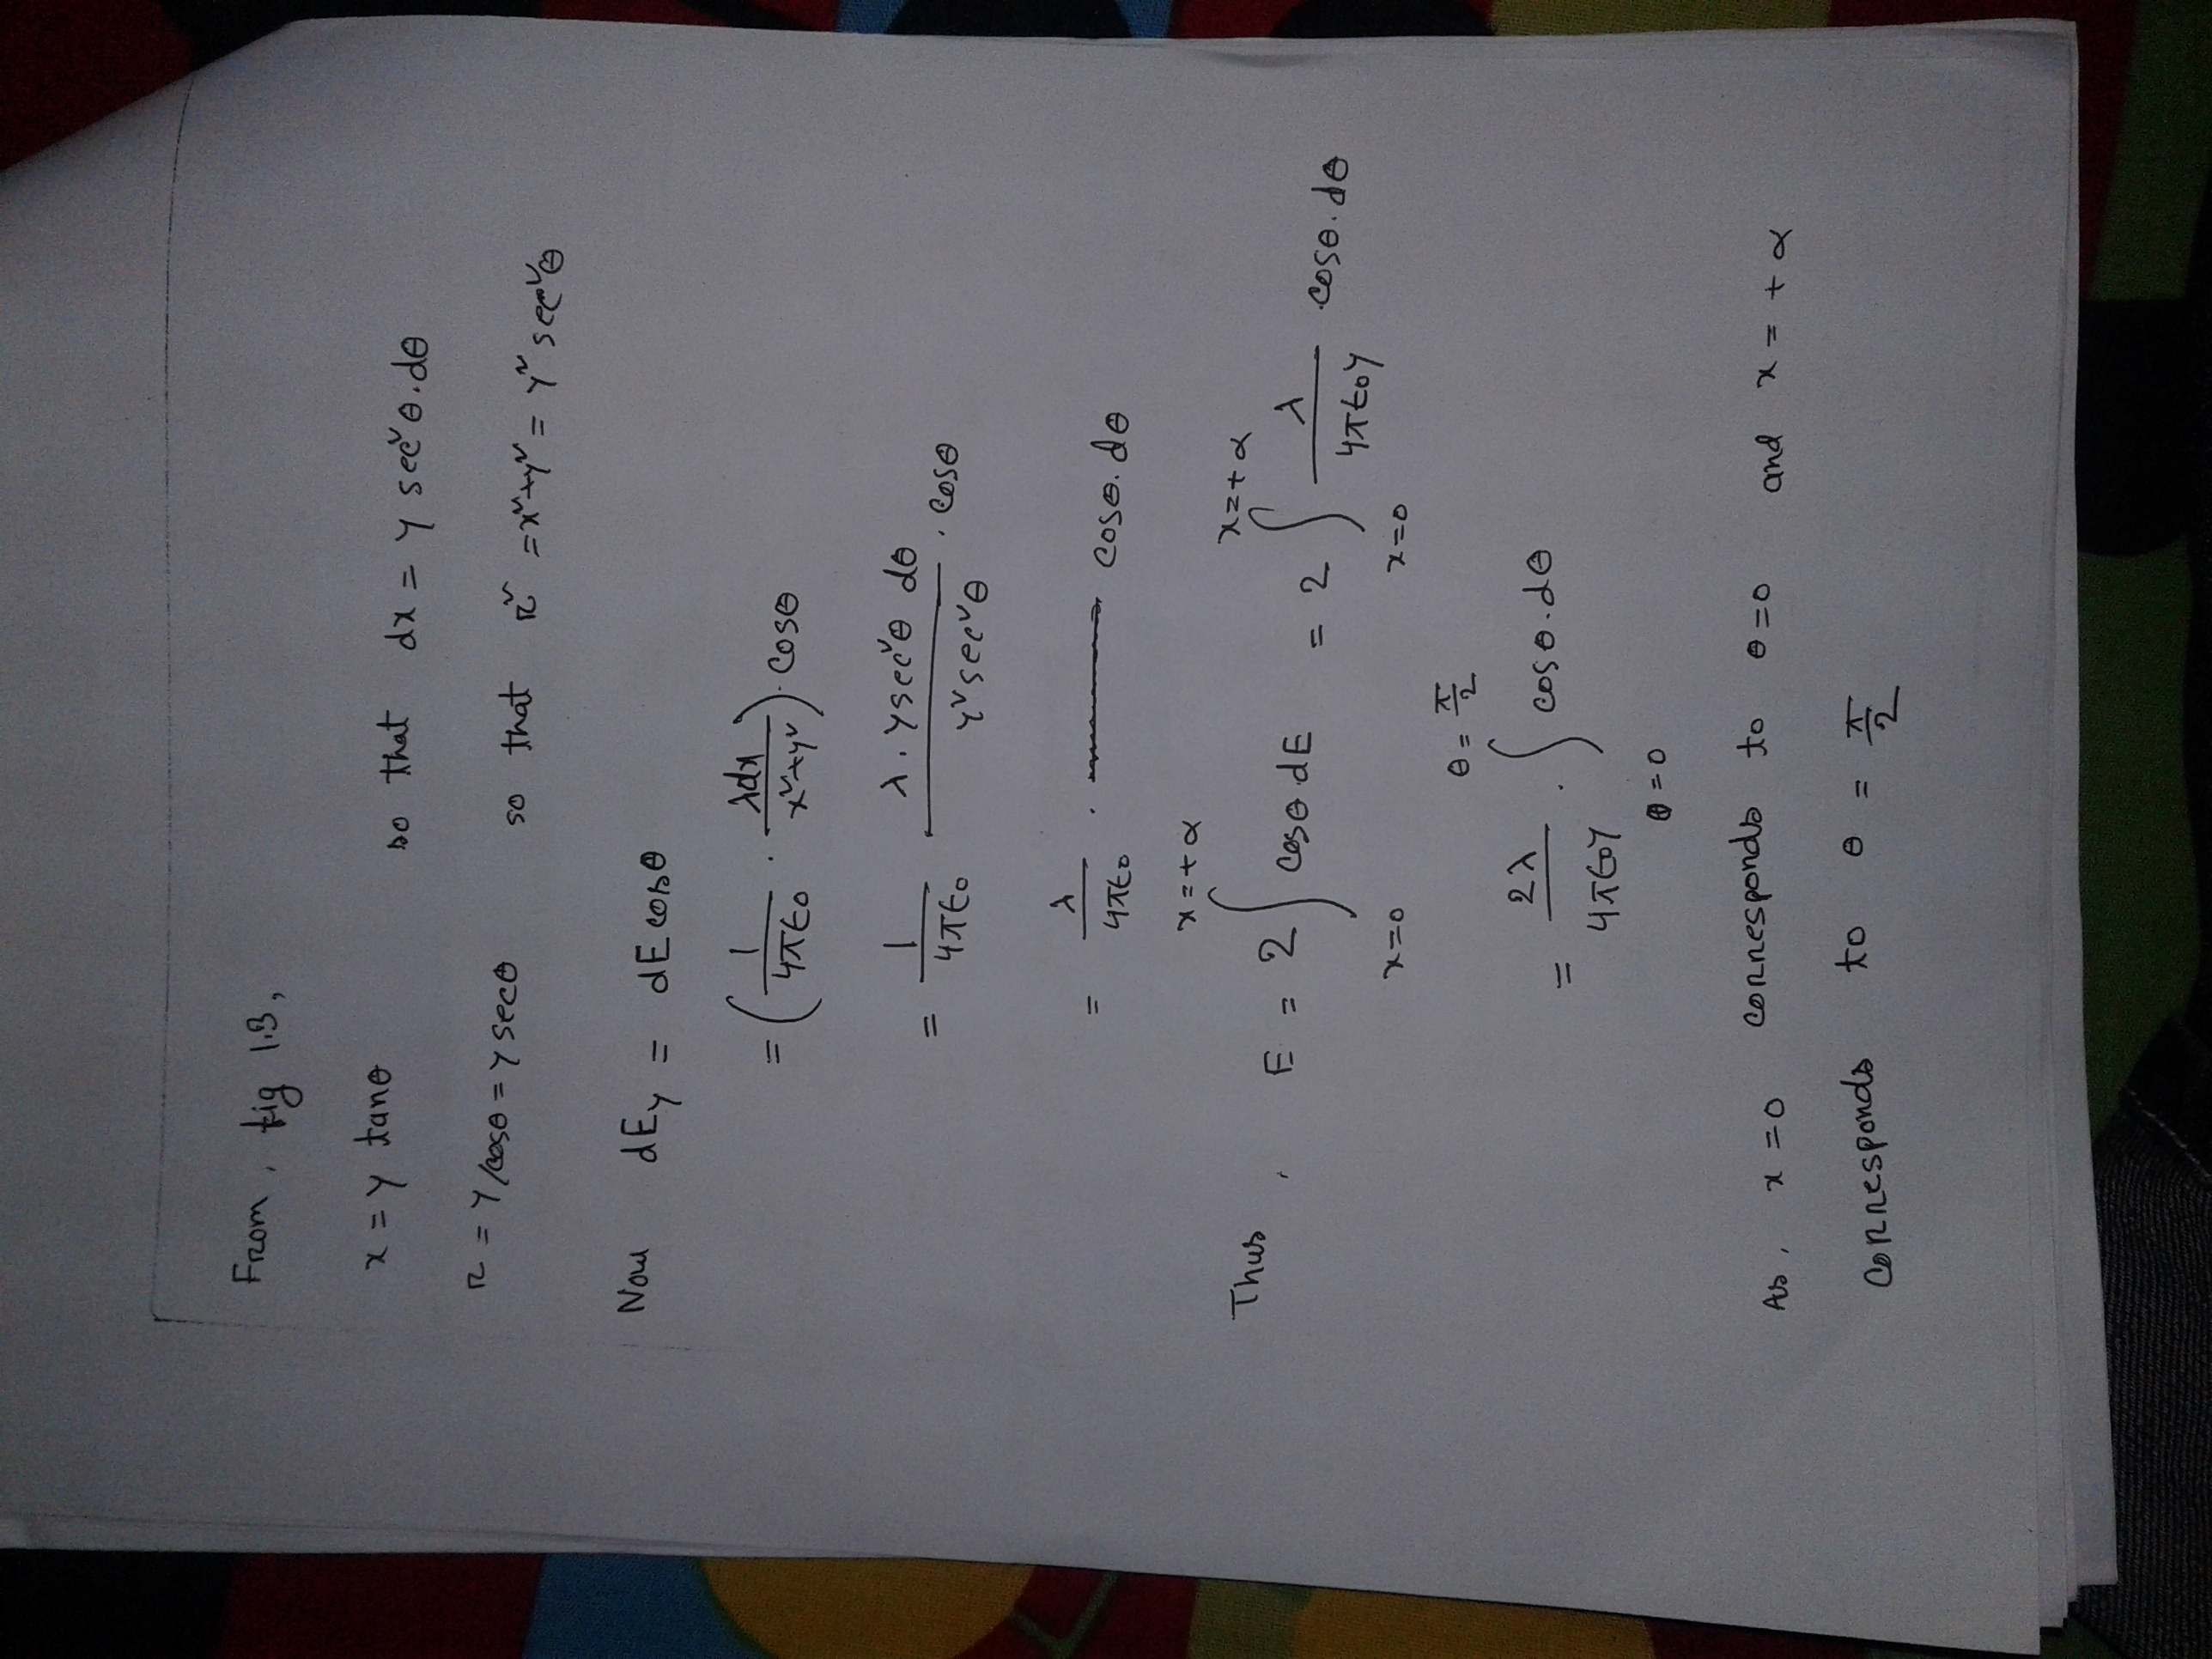 From, fig 1.3,
x = y tanθ so that dx = y sec²θ.dθ
r = y/cosθ = y secθ so that r² = x²+y² = y² sec²θ
Now dEy = dE cosθ
= (1/4πε₀ · λdx/x²+y²)·cosθ
= 1/4πε₀ λ.y sec²θ dθ/y² sec²θ . cosθ
= λ/4πε₀ . cosθ.dθ
Thus, E = 2 ∫_{x=0}^{x=+α} cosθ dE = 2 ∫_{x=0}^{x=+α} λ/4πε₀y .cosθ.dθ
= 2λ/4πε₀y . ∫_{θ=0}^{θ=π/2} cosθ.dθ
As, x=0 corresponds to θ=0 and x = +α
corresponds to θ = π/2